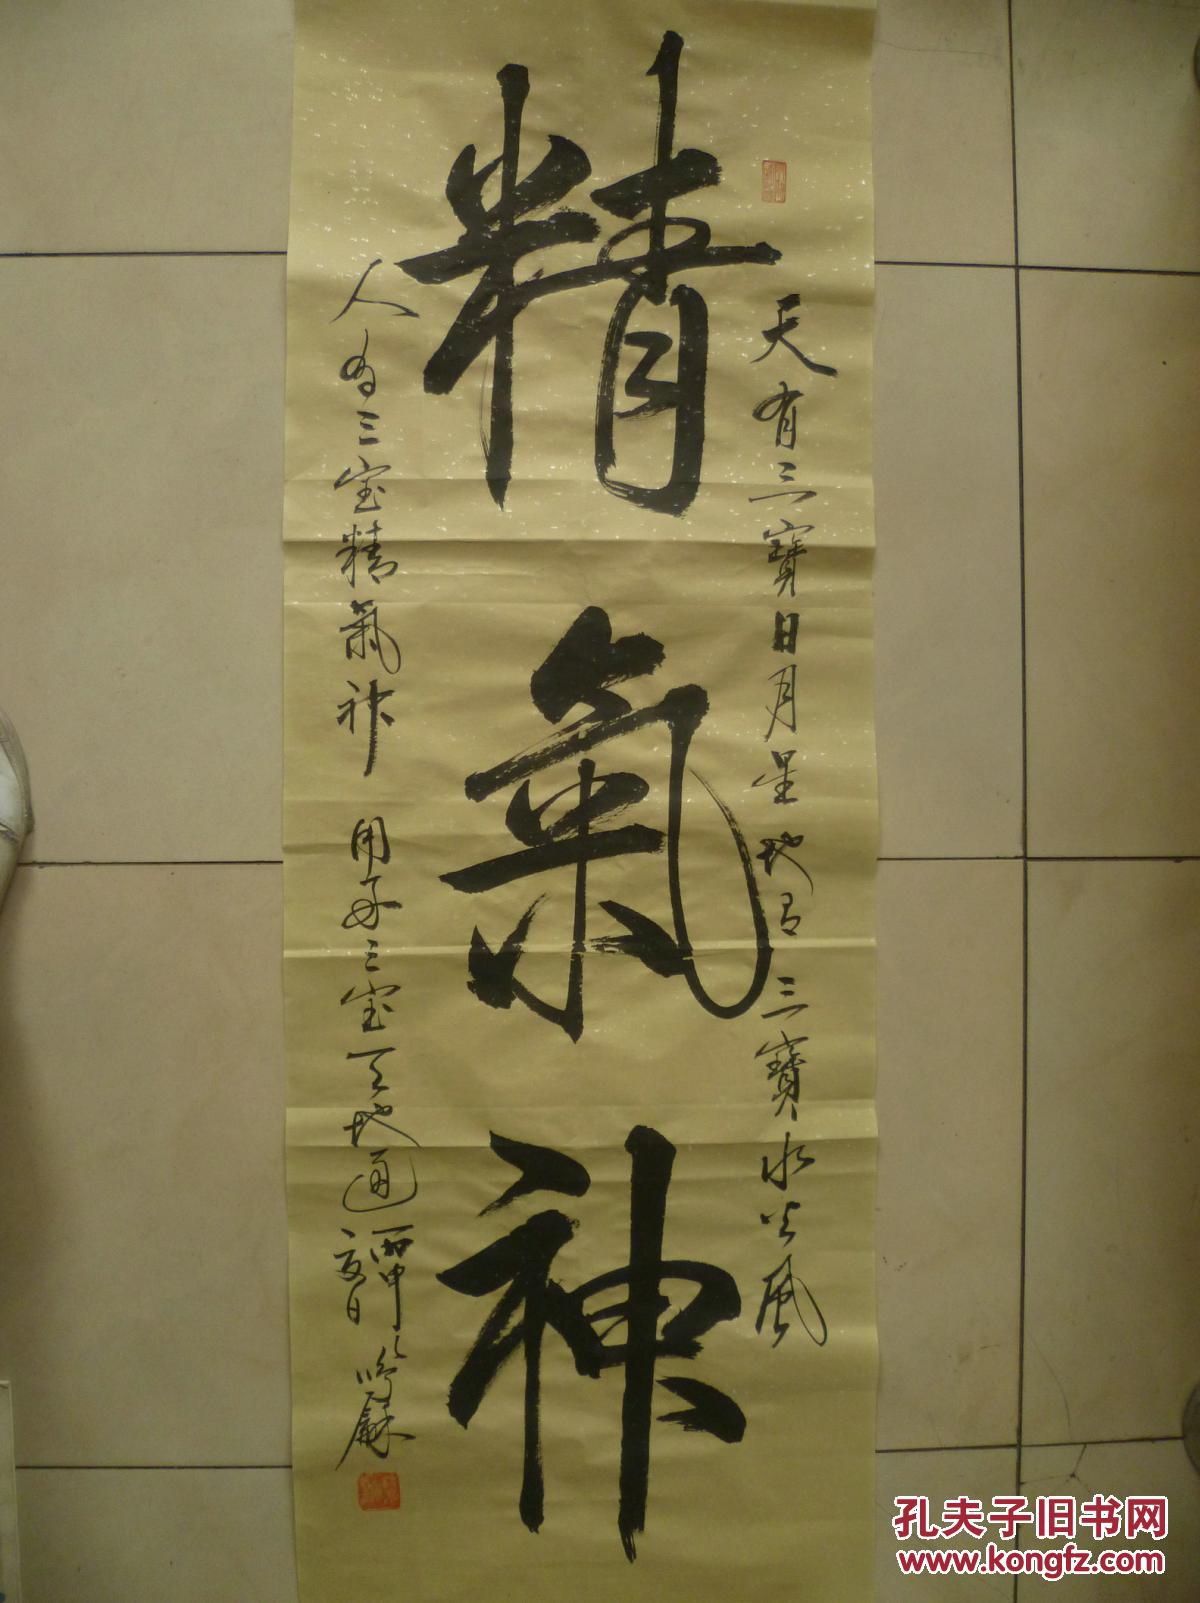 精氣神
天有三寶日月星地有三寶水火風
人有三宝精氣神 用好三宝天地通
丙申
夏日
孔夫子旧书网
www.kongfz.com